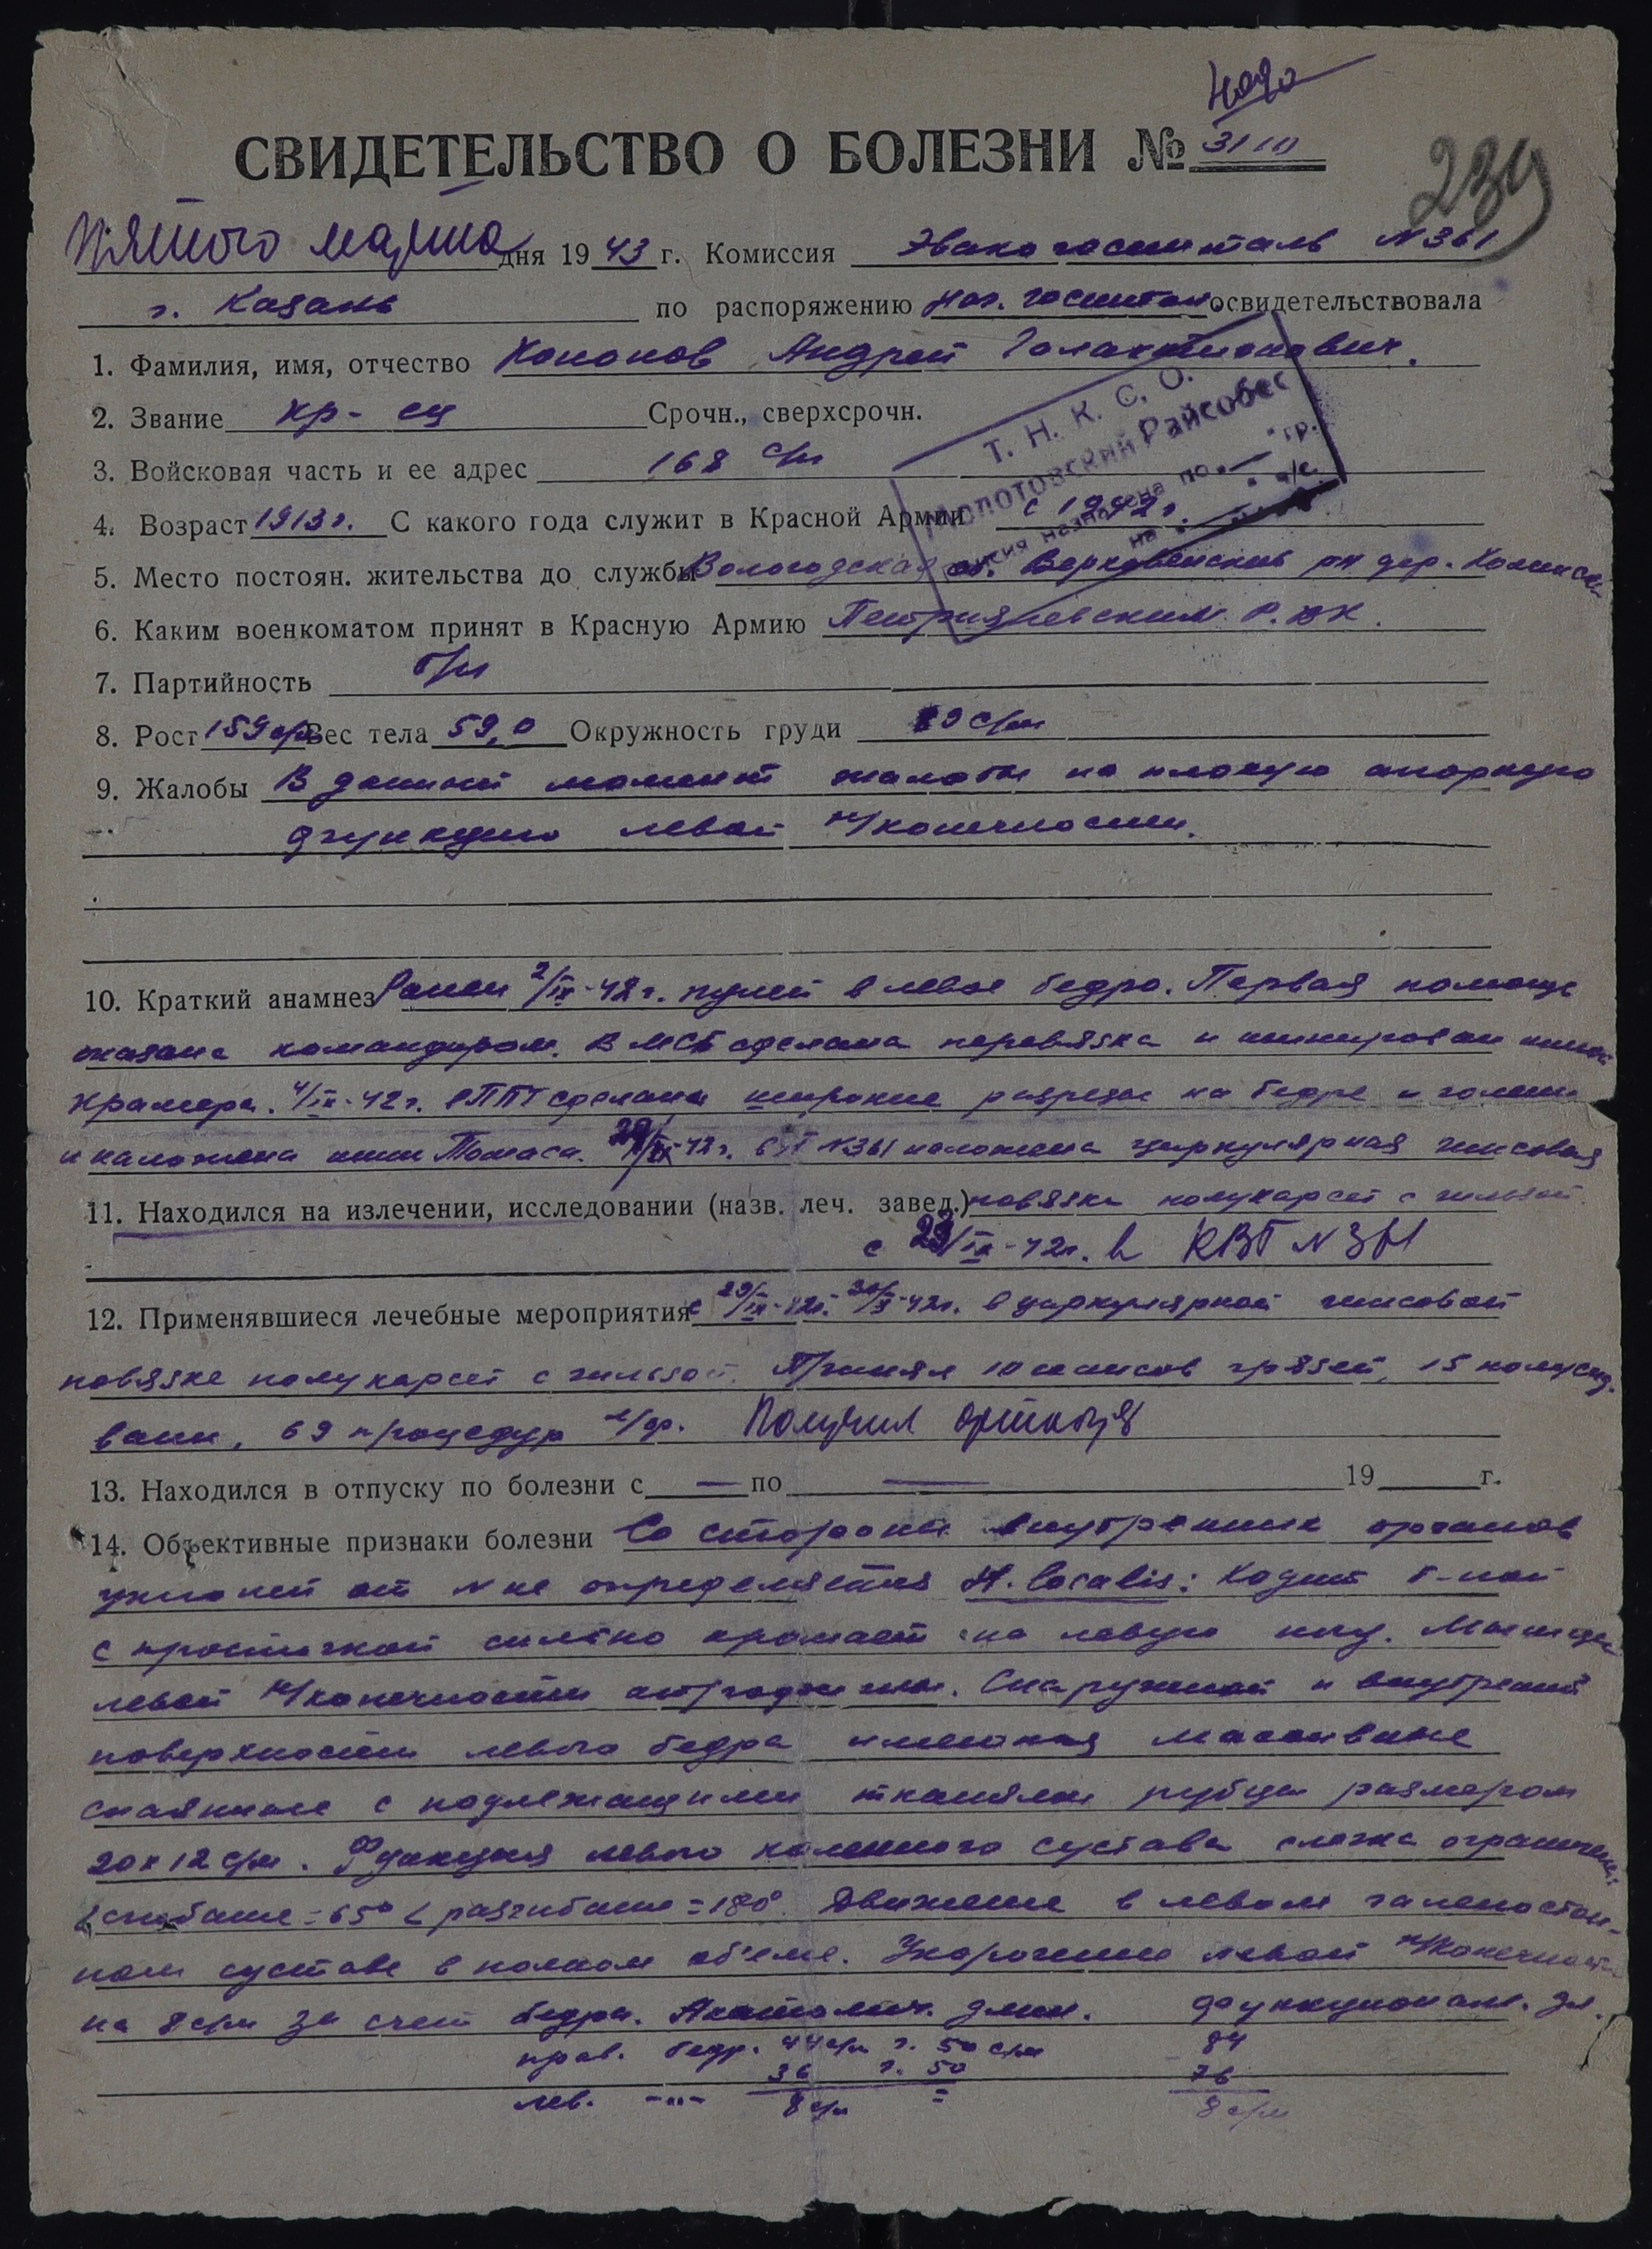 СВИДЕТЕЛЬСТВО О БОЛЕЗНИ № 3110
239
пятого марта дня 1943 г. Комиссия Эвакогоспиталь №361
г. Казань по распоряжению нач. госпиталя освидетельствовала
1. Фамилия, имя, отчество Кононов Андрей Галактионович.
2. Звание кр-ец Срочн., сверхсрочн.
Т. Н. К. С. О.
Молотовский Райсобес
Пенсия назначена по " — " гр.
на
3. Войсковая часть и ее адрес 168 с/п
4. Возраст 1913г. С какого года служит в Красной Армии с 1942г.
5. Место постоян. жительства до службы Вологодская об. рн дер.
6. Каким военкоматом принят в Красную Армию Р.В.К.
7. Партийность б/п
8. Рост 159 с/м Вес тела 59,0 Окружность груди 89 с/м
9. Жалобы В данный момент жалобы на плохую опорную
функцию левой н/конечности.
10. Краткий анамнез Ранен 2/IX-42г. пулей в левое бедро. Первая помощь
оказана командиром. В МСБ сделана перевязка и шинирован шиной
Крамера. 4/IX-42г. в ППГ сделаны широкие разрезы на бедре и голени
и наложена шина Томаса. 29/IX-42г. в №361 наложена циркулярная гипсовая
11. Находился на излечении, исследовании (назв. леч. завед.) повязка полукорсет с гильзой.
с 29/IX-42г. в КВГ №361
12. Применявшиеся лечебные мероприятия с 29/IX-42г. 30/X-42г. в циркулярной гипсовой
повязке полукорсет с гильзой. Принял 10 сеансов грязей, 15
ванн, 69 процедур л/ф. Получил
13. Находился в отпуску по болезни с — по — 19 г.
14. Объективные признаки болезни Со стороны внутренних органов
уклонений от N не определяется St. localis: Ходит б-ной
с тросточкой сильно хромает на левую ногу. Мышцы
левой н/конечности атрофичны. Снаружной и внутренней
поверхности левого бедра имеются массивные
спаянные с подлежащими тканями рубцы размером
20х12 с/м. Функция левого коленного сустава слегка ограничена:
∠ сгибание=65° ∠ разгибание=180° Движение в левом голеностоп-
ном суставе в полном об'еме. Укорочение левой н/конечности
на 8 с/м за счет бедра. Анатомич. длин. функциональ. дл.
прав. бедр. 44 с/м г. 50 с/м 84
лев. —"— 36 г. 50 76
8 с/м = 8 с/м